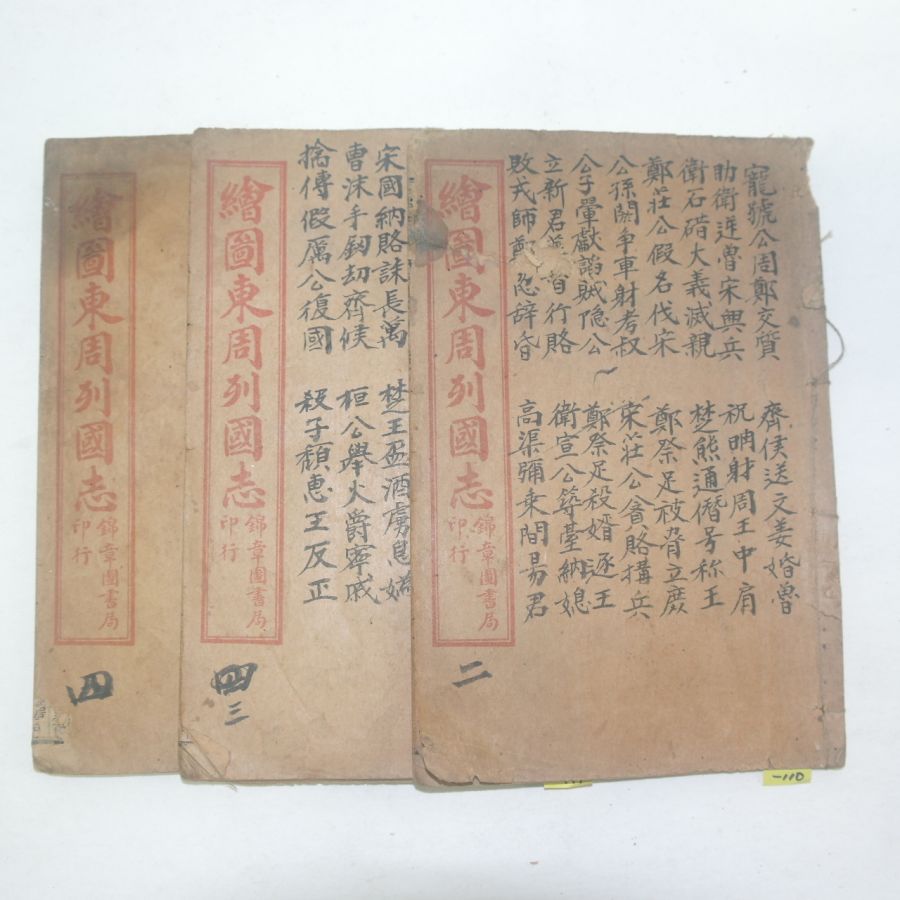 寵號公周鄭交質 齊侯送文姜婚魯
助衛逆魯宋興兵 祝聃射周王中肩
衛石碏大義滅親 楚熊通僭号称王
鄭莊公假名伐宋 鄭祭足被脅立庶
公孫閼争車射考叔 宋莊公貪賂搆兵
公子翬獻諂賊隐公 鄭祭足殺婿逐王
立新君督行賂 衛宣公築臺納媳
敗戎師鄭忽辞昏 高渠彌乗間易君
繪圖東周列國志
錦章圖書局
印行
二
-110
宋國納賂誅長萬 楚王盃酒虜息媯
曹沫手釰刼齊候 桓公舉火爵寧戚
擒傅假厲公復國 殺子頽惠王反正
繪圖東周列國志
錦章圖書局
印行
三
繪圖東周列國志
錦章圖書局
印行
四